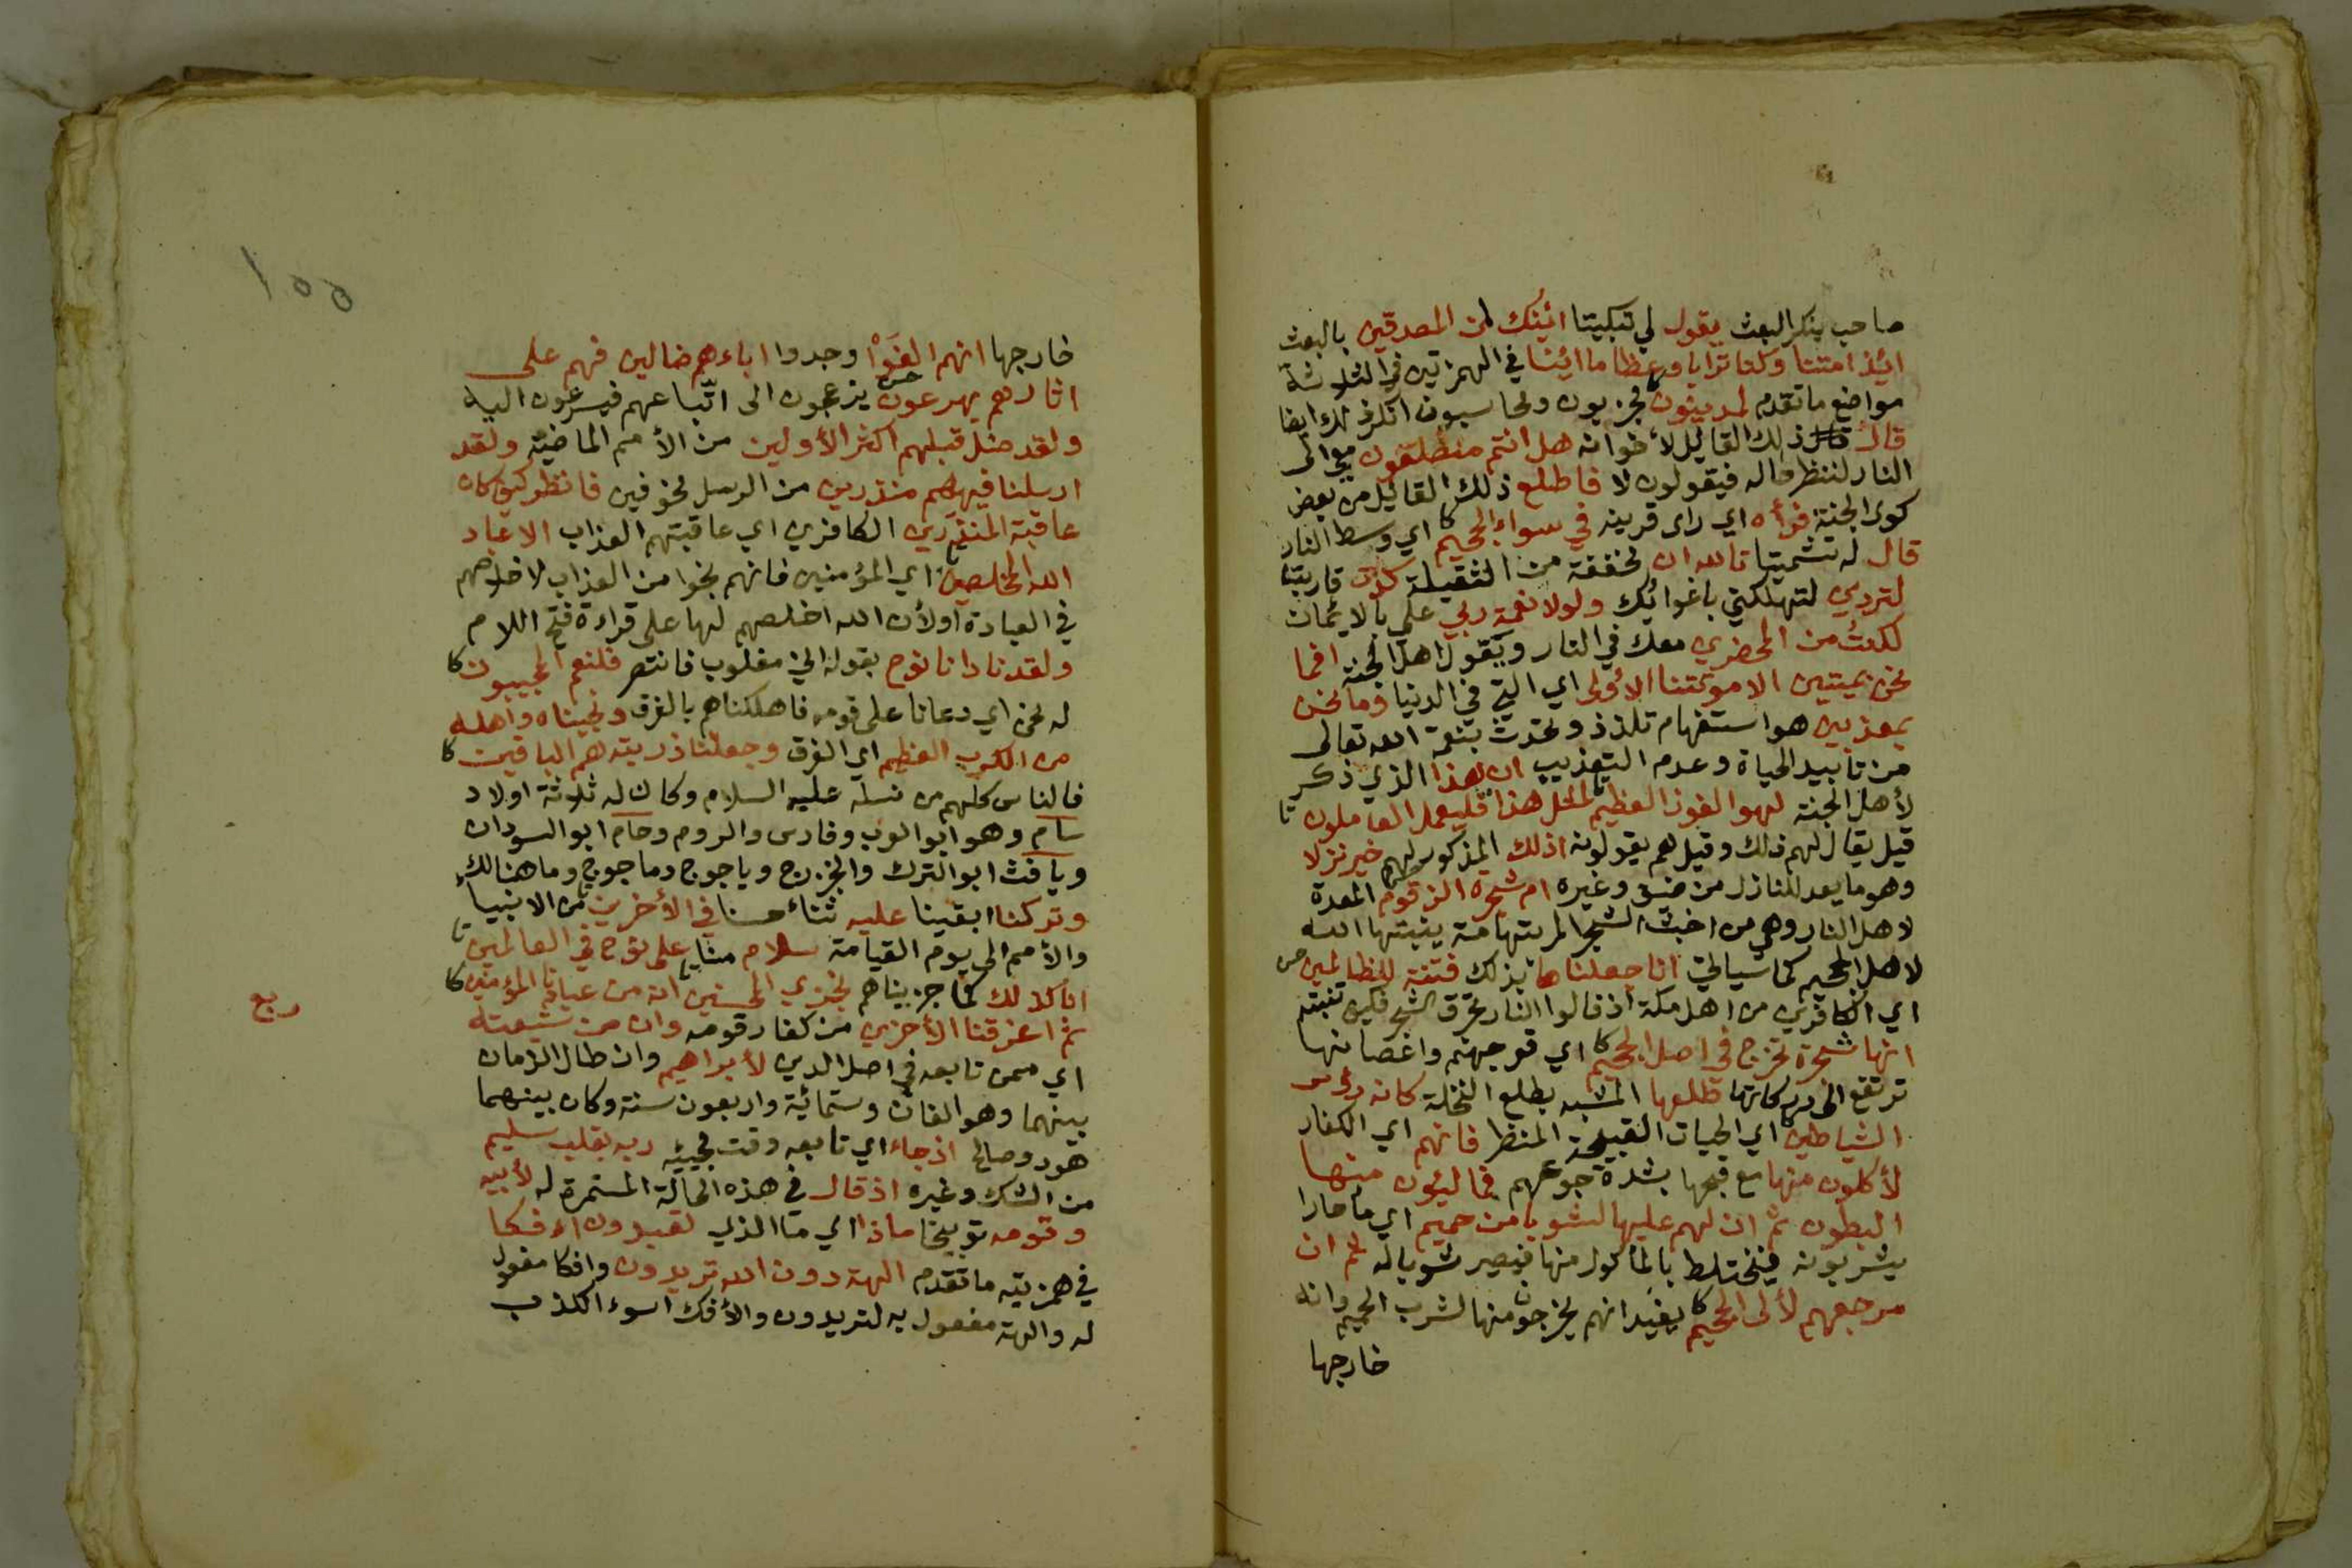 صاحب ينكر البعث يقول لي تبكيتا ائنك لمن المصدقين بالبعث
ائذا متنا وكنا ترابا وعظاما ائنا في الهمزتين في الثلاثة
مواضع ما تقدم لمدينون مجزيون ومحاسبون انكر ذلك ايضا
قال ذلك القائل لاخوانه هل انتم مطلعون معي الى
النار لننظر حاله فيقولون لا فاطلع ذلك القائل من بعض
كوى الجنة فرأه اي راى قرينه في سواء الجحيم اي وسط النار
قال له تشميتا تالله ان مخففة من الثقيلة كدت قاربت
لتردين لتهلكني باغوائك ولولا نعمة ربي علي بالايمان
لكنتُ من المحضرين معك في النار ويقول اهل الجنة افما
نحن بميتين الا موتتنا الأولى اي التي في الدنيا وما نحن
بمعذبين هو استفهام تلذذ وتحدث بنعمة الله تعالى
من تابيد الحياة وعدم التعذيب ان هذا الذي ذكر
لأهل الجنة لهو الفوز العظيم لمثل هذا فليعمل العاملون
قيل يقال لهم ذلك وقيل هم يقولونه اذلك المذكور لهم خير نزلا
وهو ما يعد للنازل من ضيف وغيره ام شجرة الزقوم المعدة
لاهل النار وهي من اخبث الشجر المر بتهامة ينبتها الله
لاهل الجحيم كما سياتي انا جعلناها بذلك فتنة للظالمين
اي الكافرين من اهل مكة اذ قالوا النار تحرق الشجر فكيف تنبته
انها شجرة تخرج في اصل الجحيم اي قعر جهنم واغصانها
ترتفع الى دركاتها طلعها المشبه بطلع النخلة كانه رؤس
الشياطين اي الحيات القبيحة المنظر فانهم اي الكفار
لأكلون منها مع قبحها بشدة جوعهم فمالئون منها
البطون ثم ان لهم عليها لشوبا من حميم اي ما حارا
يشربونه فيختلط بالمأكول منها فيصير شوبا له ثم ان
مرجعهم لألى الجحيم يفيد انهم يخرجون منها لشرب الحميم وانه
خارجها
١٥٥
خارجها انهم الفَوْا وجدوا اباءهم ضالين فهم على
اثارهم يهرعون يزعجون الى اتّباعهم فيسرعون اليه
ولقد ضل قبلهم اكثر الأولين من الأمم الماضية ولقد
ارسلنا فيهم منذرين من الرسل مخوفين فانظر كيف كان
عاقبة المنذَرين الكافرين اي عاقبتهم العذاب الا عباد
الله المخلصين اي المؤمنين فانهم نجوا من العذاب لاخلاصهم
في العبادة اولأن الله اخلصهم لها على قراءة فتح اللام
ولقد نادانا نوح بقوله اني مغلوب فانتصر فلنعم المجيبون
له نحن اي دعانا على قومه فاهلكناهم بالغرق ونجيناه واهله
من الكرب العظيم اي الغرق وجعلنا ذريته هم الباقين
فالناس كلهم من نسله عليه السلام وكان له ثلاثة اولاد
سام وهو ابو العرب وفارس والروم وحام ابو السودان
ويافث ابو الترك والخزرج وياجوج وماجوج وما هنالك
وتركنا ابقينا عليه ثناء حسنا في الأخرين من الانبياء
والأمم الى يوم القيامة سلام منا على نوح في العالمين
انا كذلك كما جزيناهم نجزي المحسنين انه من عبادنا المؤمنين
ثم اغرقنا الأخرين من كفار قومه وان من شيعته
ربع
اي ممن تابعه في اصل الدين لأبراهيم وان طال الزمان
بينهما وهو الفان وستمائة واربعون سنة وكان بينهما
هود وصالح اذ جاء اي تابعه وقت مجيئه ربه بقلب سليم
من الشك وغيره اذ قال في هذه الحالة المستمرة له لأبيه
وقومه توبيخا ماذا اي ما الذي تعبدون اءفكا
في همزتيه ما تقدم الهة دون الله تريدون وافكا مفعول
له والهة مفعول به لتريدون والأفك اسوء الكذب